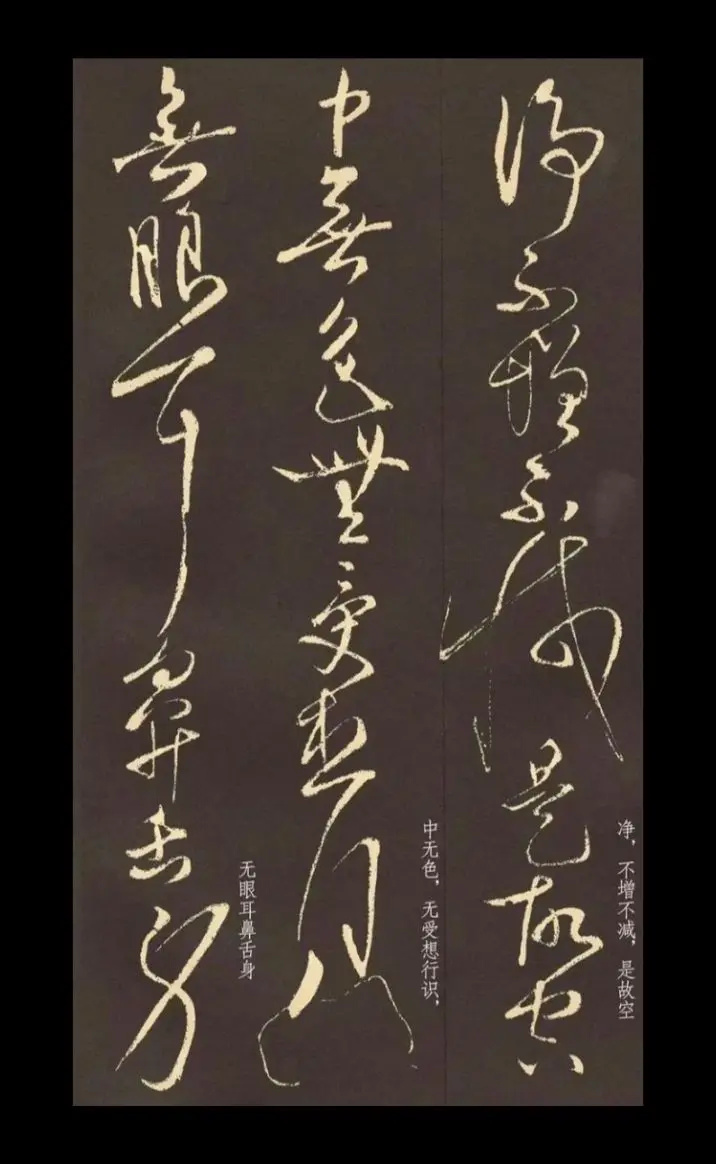 淨不增不減是故空
净，不增不减，是故空
中無色無受想行識
中无色，无受想行识，
無眼耳鼻舌身
无眼耳鼻舌身